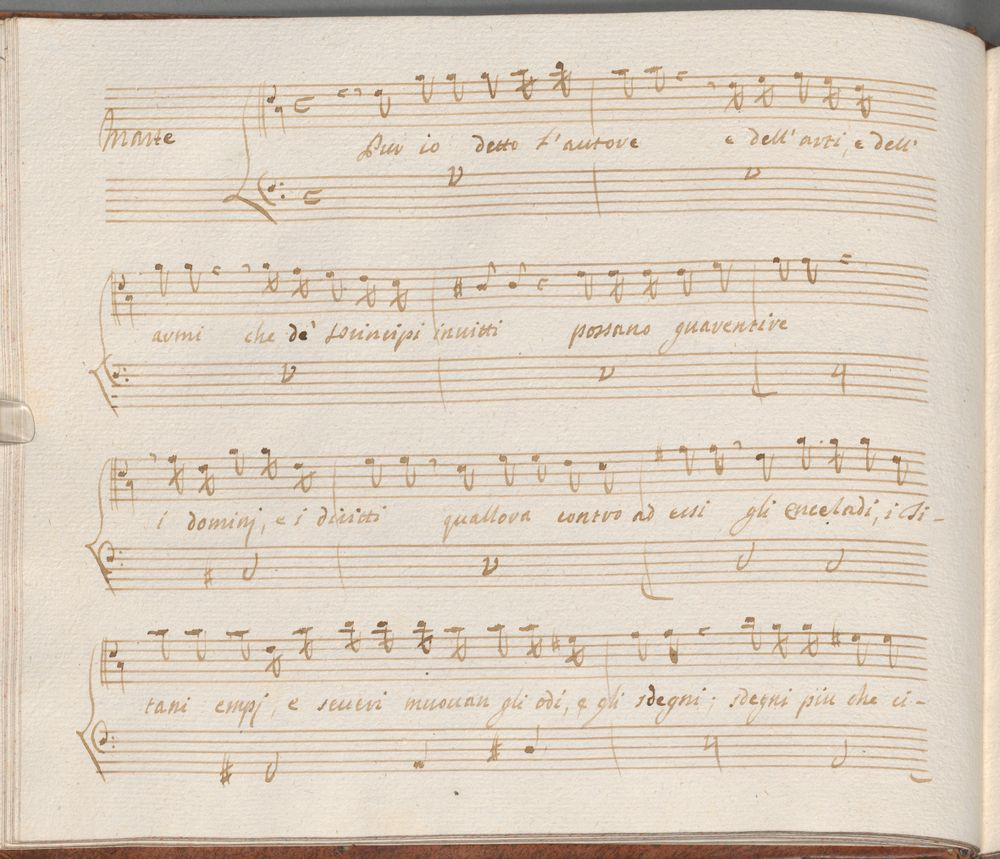 Marte
Pur io detto l'autore e dell'arti, e dell'
armi che de' Principi invitti possano guarentire
i dominj, e i diritti quallora contro ad essi gli Enceladi, i Ti-
tani empj, e severi muovan gli odi, e gli sdegni; sdegni più che ci-